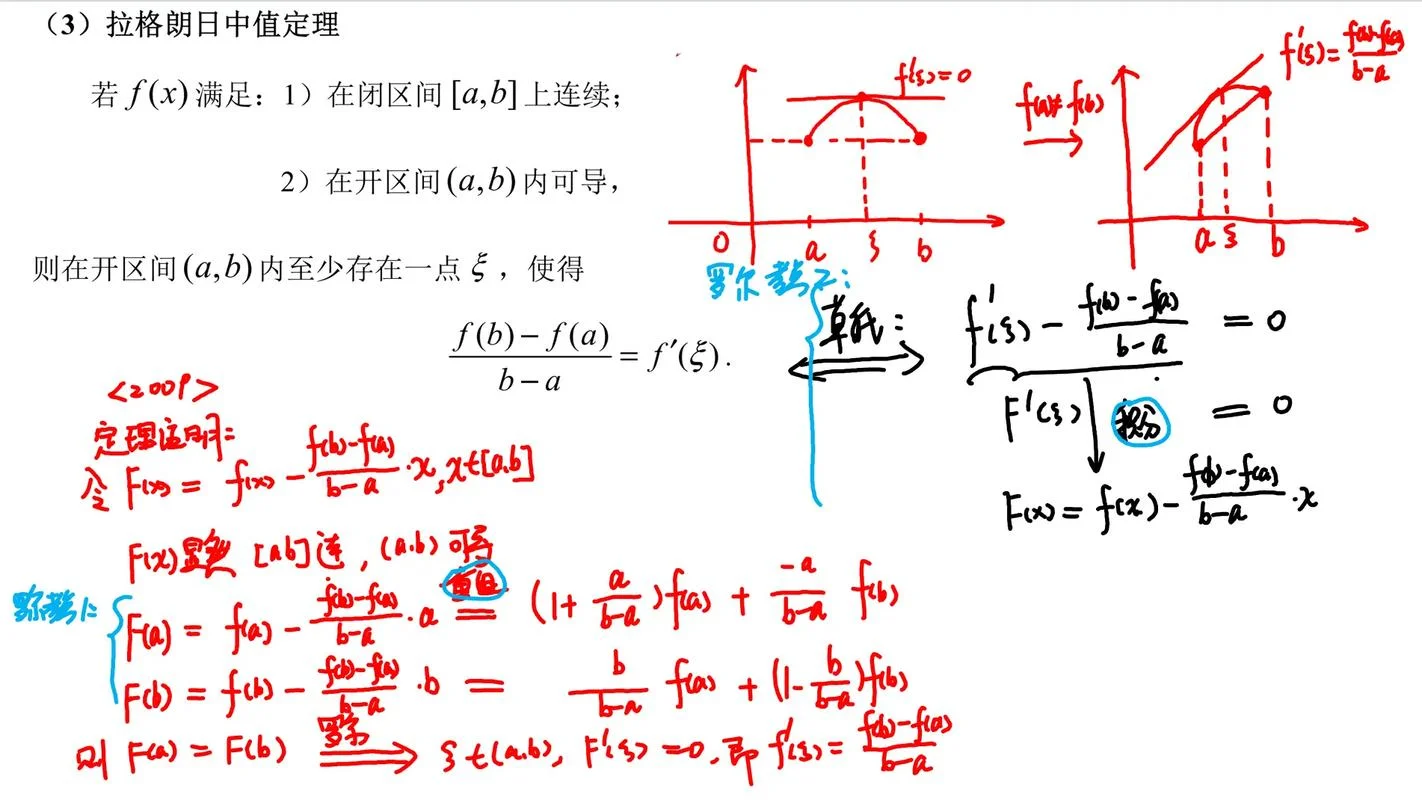 （3）拉格朗日中值定理
若 f(x) 满足：1）在闭区间 [a,b] 上连续；
2）在开区间 (a,b) 内可导，
则在开区间 (a,b) 内至少存在一点 ξ ，使得
\frac{f(b)-f(a)}{b-a} = f'(ξ).
f'(ξ)=0
0 a ξ b
f(a)≠f(b)
f'(ξ)=\frac{f(b)-f(a)}{b-a}
a ξ b
罗尔 2：
草稿： f'(ξ) - \frac{f(b)-f(a)}{b-a} = 0
F'(ξ) 积分 = 0
F(x) = f(x) - \frac{f(b)-f(a)}{b-a}·x
<2009>
定理证明：
令 F(x) = f(x) - \frac{f(b)-f(a)}{b-a}·x, x∈[a,b]
F(x)显然 [a,b]连, (a,b)可导
罗尔 1：
F(a) = f(a) - \frac{f(b)-f(a)}{b-a}·a = (1+\frac{a}{b-a})f(a) + \frac{-a}{b-a} f(b)
F(b) = f(b) - \frac{f(b)-f(a)}{b-a}·b = \frac{b}{b-a} f(a) + (1-\frac{b}{b-a})f(b)
则 F(a) = F(b) 罗尔 ⟹ ξ∈(a,b), F'(ξ)=0, 即 f'(ξ) = \frac{f(b)-f(a)}{b-a}